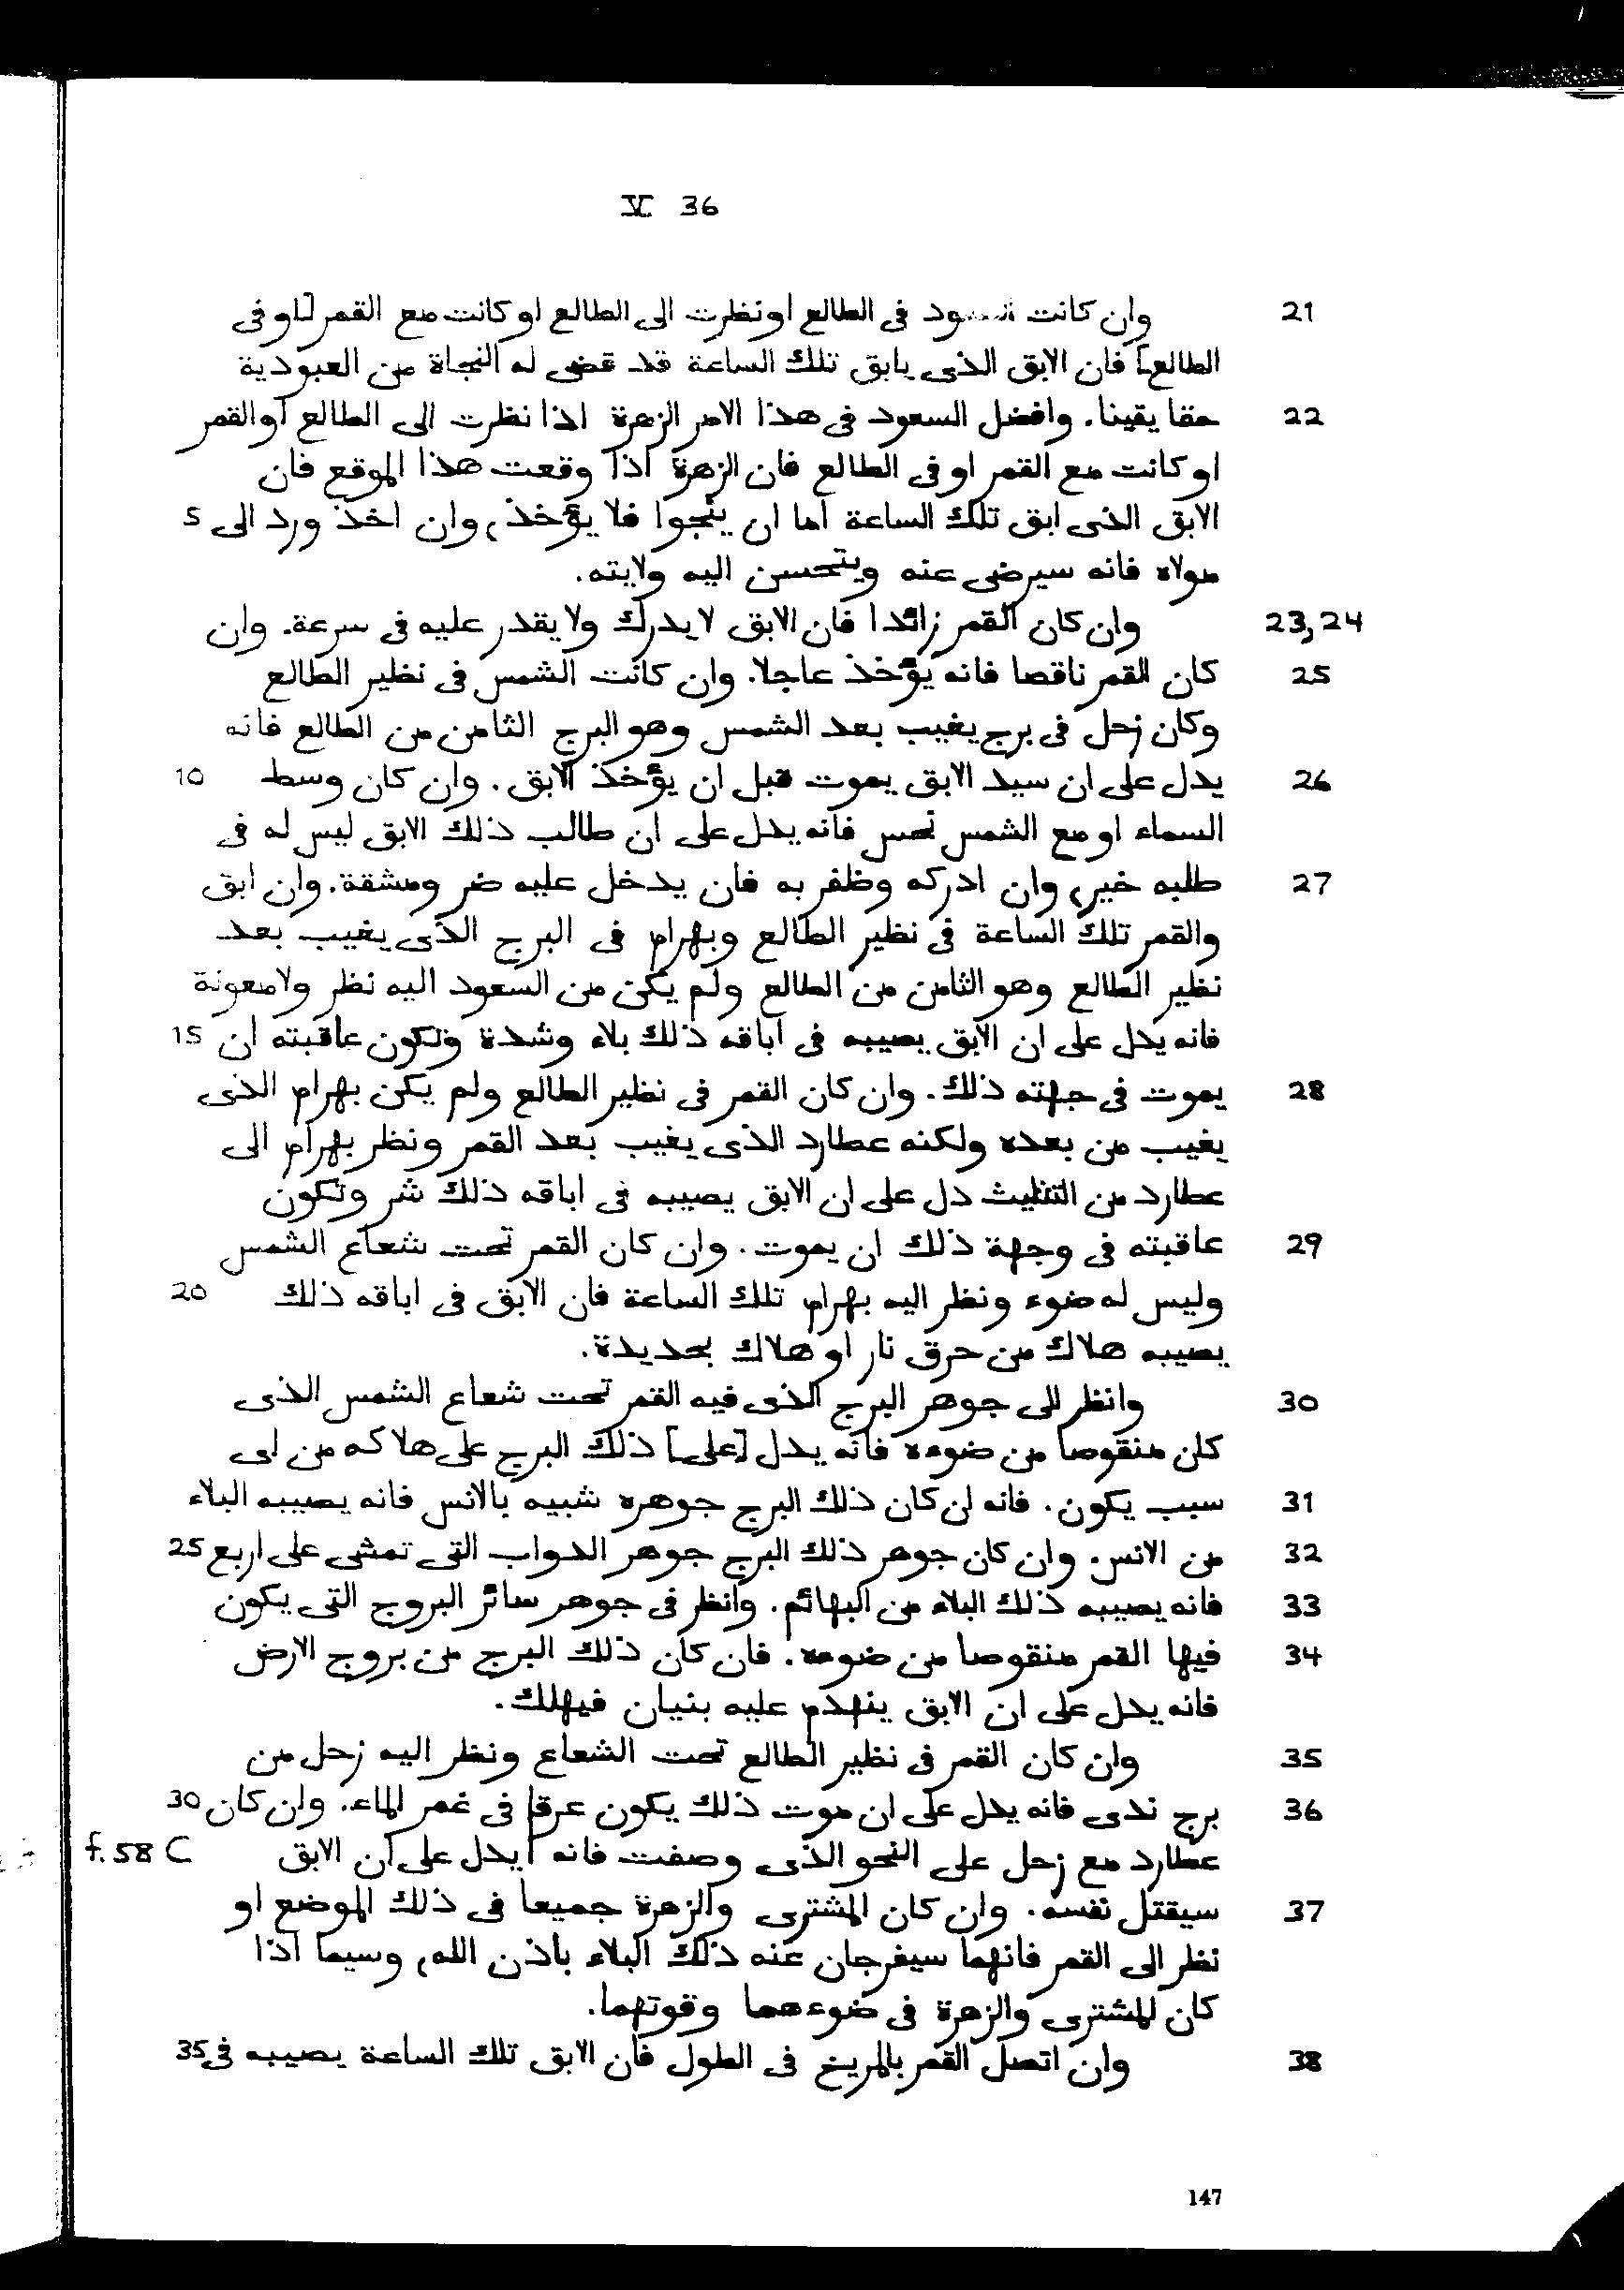 V 36
21 وان كانت السعود فى الطالع او نظرت الى الطالع او كانت مع القمر [او فى
الطالع] فان الابق الذى يابق تلك الساعة قد قضى له النجاة من العبودية
22 حقا يقينا. وافضل السعود فى هذا الامر الزهرة اذا نظرت الى الطالع او القمر
او كانت مع القمر او فى الطالع فان الزهرة اذا وقعت هذا الموقع فان
الابق الذى ابق تلك الساعة اما ان ينجوا فلا يؤخذ، وان اخذ ورد الى 5
مولاه فانه سيرضى عنه ويتحسن اليه ولايته.
23,24 وان كان القمر زائدا فان الابق لا يدرك ولا يقدر عليه فى سرعة. وان
25 كان القمر ناقصا فانه يؤخذ عاجلا. وان كانت الشمس فى نظير الطالع
وكان زحل فى برج يغيب بعد الشمس وهو البرج الثامن من الطالع فانه
26 يدل على ان سيد الابق يموت قبل ان يؤخذ الابق. وان كان وسط 10
السماء او مع الشمس نحس فانه يدل على ان طالب ذلك الابق ليس له فى
27 طلبه خير، وان ادركه وظفر به فان يدخل عليه ضر ومشقة. وان ابق
والقمر تلك الساعة فى نظير الطالع وبهرام فى البرج الذى يغيب بعد
نظير الطالع وهو الثامن من الطالع ولم يكن من السعود اليه نظر ولا معونة
فانه يدل على ان الابق يصيبه فى اباقه ذلك بلاء وشدة وتكون عاقبته ان 15
28 يموت فى جهته ذلك. وان كان القمر فى نظير الطالع ولم يكن بهرام الذى
يغيب من بعده ولكنه عطارد الذى يغيب بعد القمر ونظر بهرام الى
عطارد من التثليث دل على ان الابق يصيبه فى اباقه ذلك شر وتكون
29 عاقبته فى وجهة ذلك ان يموت. وان كان القمر تحت شعاع الشمس
وليس له ضوء ونظر اليه بهرام تلك الساعة فان الابق فى اباقه ذلك 20
يصيبه هلاك من حرق نار او هلاك بحديدة.
30 وانظر الى جوهر البرج الذى فيه القمر تحت شعاع الشمس الذى
كان منقوصا من ضوءه فانه يدل [على] ذلك البرج على هلاكه من اى
31 سبب يكون. فانه ان كان ذلك البرج جوهره شبيه بالانس فانه يصيبه البلاء
32 من الانس. وان كان جوهر ذلك البرج جوهر الدواب التى تمشى على اربع 25
33 فانه يصيبه ذلك البلاء من البهائم. وانظر فى جوهر سائر البروج التى يكون
34 فيها القمر منقوصا من ضوءه. فان كان ذلك البرج من بروج الارض
فانه يدل على ان الابق ينهدم عليه بنيان فيهلك.
35 وان كان القمر فى نظير الطالع تحت الشعاع ونظر اليه زحل من
36 برج ندى فانه يدل على ان موت ذلك يكون عرقا فى غمر الماء. وان كان 30
عطارد مع زحل على النحو الذى وصفت فانه | يدل على ان الابق f. 58 C
37 سيقتل نفسه. وان كان المشترى والزهرة جميعا فى ذلك الموضع او
نظر الى القمر فانهما سيفرجان عنه ذلك البلاء باذن الله، وسيما اذا
كان المشترى والزهرة فى ضوءهما وقوتهما.
38 وان اتصل القمر بالمريخ فى الطول فان الابق تلك الساعة يصيبه فى 35
147